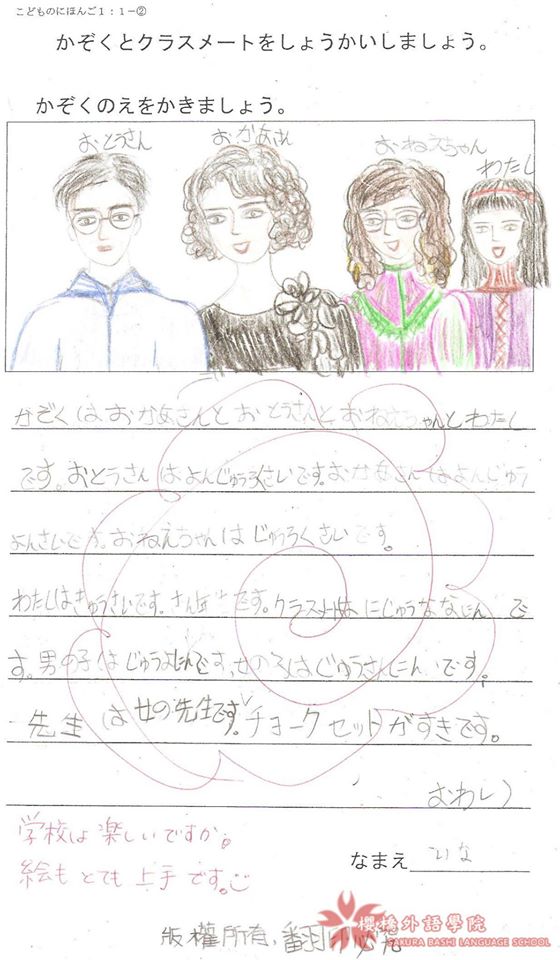 こどものにほんご1:1-②
かぞくとクラスメートをしょうかいしましょう。
かぞくのえをかきましょう。
おとうさん
おかあさん
おねえちゃん
わたし
かぞくはおかあさんとおとうさんとおねえちゃんとわたし
です。おとうさんはよんじゅうろくさいです。おかあさんはよんじゅう
よんさいです。おねえちゃんはじゅうろくさいです。
わたしはきゅうさいです。さん年生です。クラスは にじゅうななにん で
す。男の子はじゅうよにんです、女の子はじゅうさんにん です。
先生は女の先生です。チョークセットがすきです。
おわり
学校は楽しいですか。
絵もとても上手です。
なまえ いな
版權所有,翻印必究
櫻橋外語學院
SAKURA BASHI LANGUAGE SCHOOL